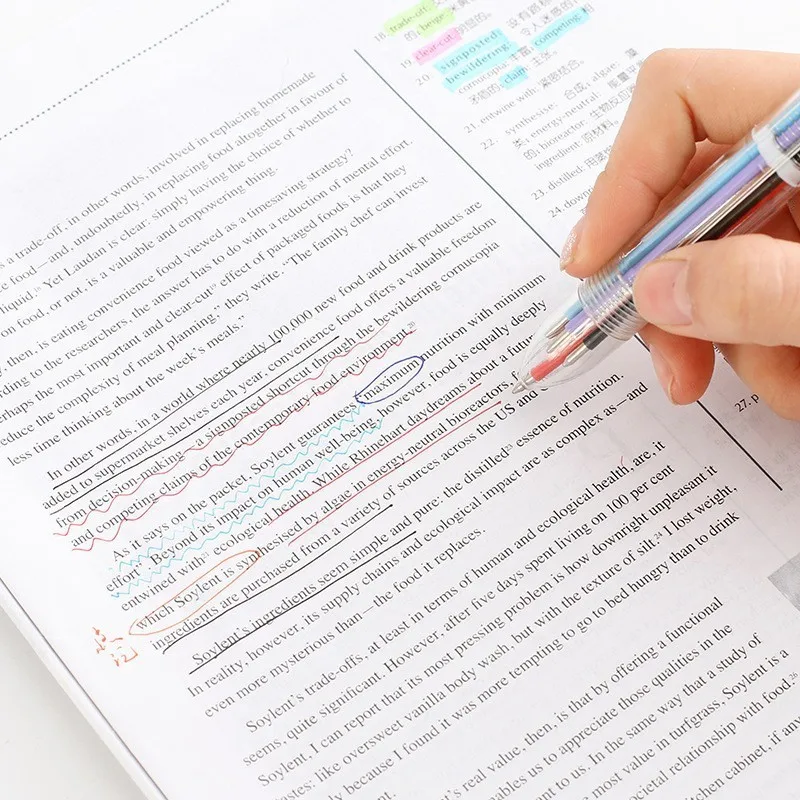 s a trade-off, in other words, involved in replacing homemade
e food—and, undoubtedly, in replacing food altogether in favour of
liquid. Yet Laudan is clear: simply having the choice of whether to
on food, or not, is a valuable and empowering thing.
, then, is eating convenience food viewed as a timesaving strategy?
rding to the researchers, the answer has to do with a reduction of mental effort.
erhaps the most important and clear-cut¹⁹ effect of packaged foods is that they
educe the complexity of meal planning," they write. "The family chef can invest
less time thinking about the week's meals."
In other words, in a world where nearly 100,000 new food and drink products are
added to supermarket shelves each year, convenience food offers a valuable freedom
from decision-making—a signposted shortcut through the bewildering cornucopia
and competing claims of the contemporary food environment.²⁰
As it says on the packet, Soylent guarantees "maximum nutrition with minimum
effort". Beyond its impact on human well-being, however, food is equally deeply
entwined with²¹ ecological health. While Rhinehart daydreams about a futu
which Soylent is synthesised by algae in energy-neutral bioreactors
ingredients are purchased from a variety of sources across the US and
Soylent's ingredients seem simple and pure: the distilled²³ essence of nutrition.
In reality, however, its supply chains and ecological impact are as complex as—and
even more mysterious than—the food it replaces.
Soylent's trade-offs, at least in terms of human and ecological health, are, it
seems, quite significant. However, after five days spent living on 100 per cent
Soylent, I can report that its most pressing problem is how downright unpleasant it
astes: like oversweet vanilla body wash, but with the texture of silt.²⁴ I lost weight,
ly because I found it was more tempting to go to bed hungry than to drink
t's real value, then, is that by offering a functional
ables us to appreciate those qualities in the
nt to us. In the same way that a study of
e most value in turfgrass, Soylent is a
ocietal relationship with food.²⁶
tchen cabinet, if any
18. trade-off:
的. beige
19. clear-cut: 明显的.
20. signposted: competing: 相
bewildering: 令人迷惑的
cornucopia: 丰富; claim: 主张.
21. entwine with: 紧密结合.
22. synthesise: 合成; algae: 藻
类; energy-neutral: 能量
的; bioreactor: 生物反应
ingredient: 原材料.
23. distilled:
24. down
27. p